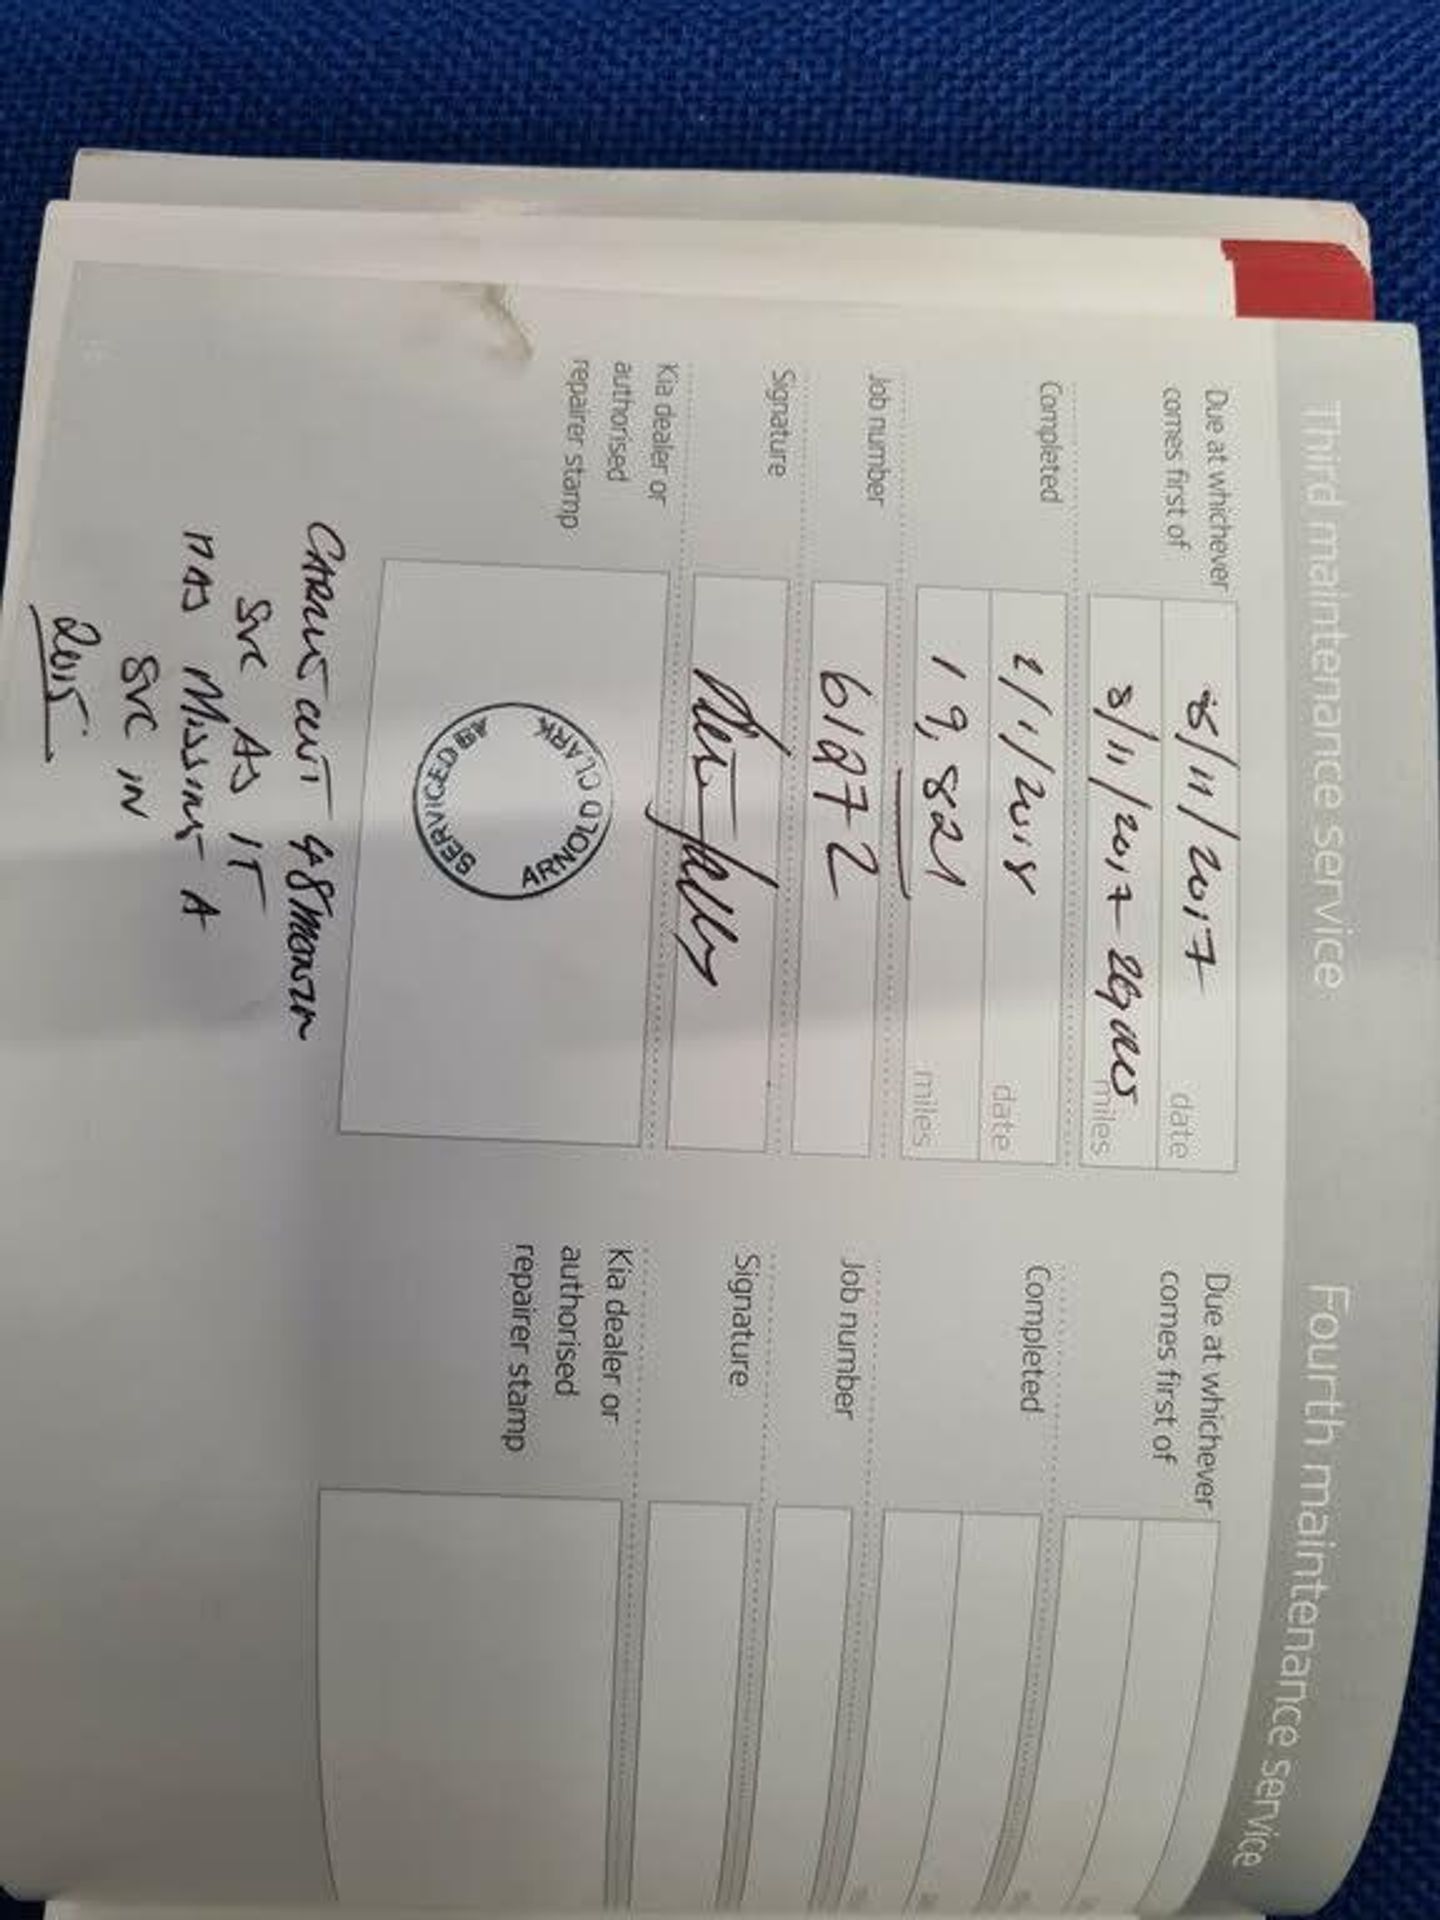 Third maintenance service
Due at whichever
comes first of
8/11/2017
date
8/11/2017
miles
Completed
2/1/2018
date
19,821
miles
Job number
61872
Signature
Kia dealer or
authorised
repairer stamp
SERVICED BY
ARNOLD CLARK
OUT 48 MONTH
SVC AS IT
WAS MISSING A
SVC IN
2015
Fourth maintenance service
Due at whichever
comes first of
Completed
Job number
Signature
Kia dealer or
authorised
repairer stamp